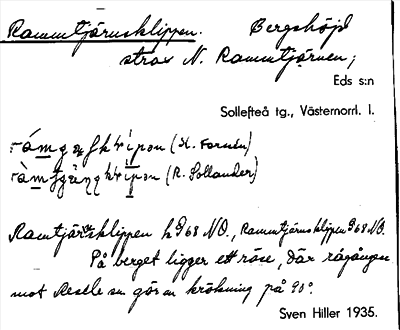 Ramtjärnsklippen. Bergshöjd
strax N. Ramtjärnen;
Eds s:n
Sollefteå tg., Västernorrl. l.
(H. Forsén)
(R. Sollander)
Ramtjärnsklippen h d68 NO., Ramtjärnsklippen d68 NO.
På berget ligger ett röse, där rågången
mot Resele sn gör en krökning på 90°.
Sven Hiller 1935.